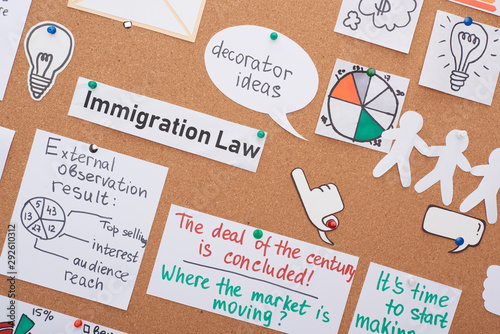 decorator
ideas
Immigration Law
External
observation
result:
13
45
5
27
12
Top selling
interest
audience
reach
The deal of the century
is concluded!
Where the market is
moving?
It's time
to start
making
15%
Adobe Stock | #292610312